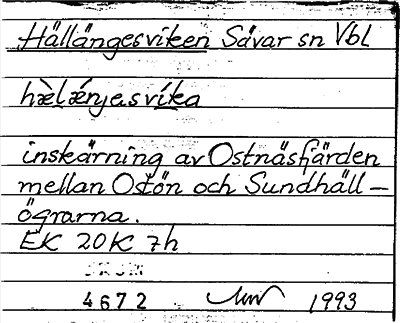 Hällängesviken Sävar sn Vbl
hæ̀lǽnjesvíka
inskärning av Ostnäsfjärden
mellan Ostön och Sundhäll-
ögrarna.
EK 20K 7h
4672 1993